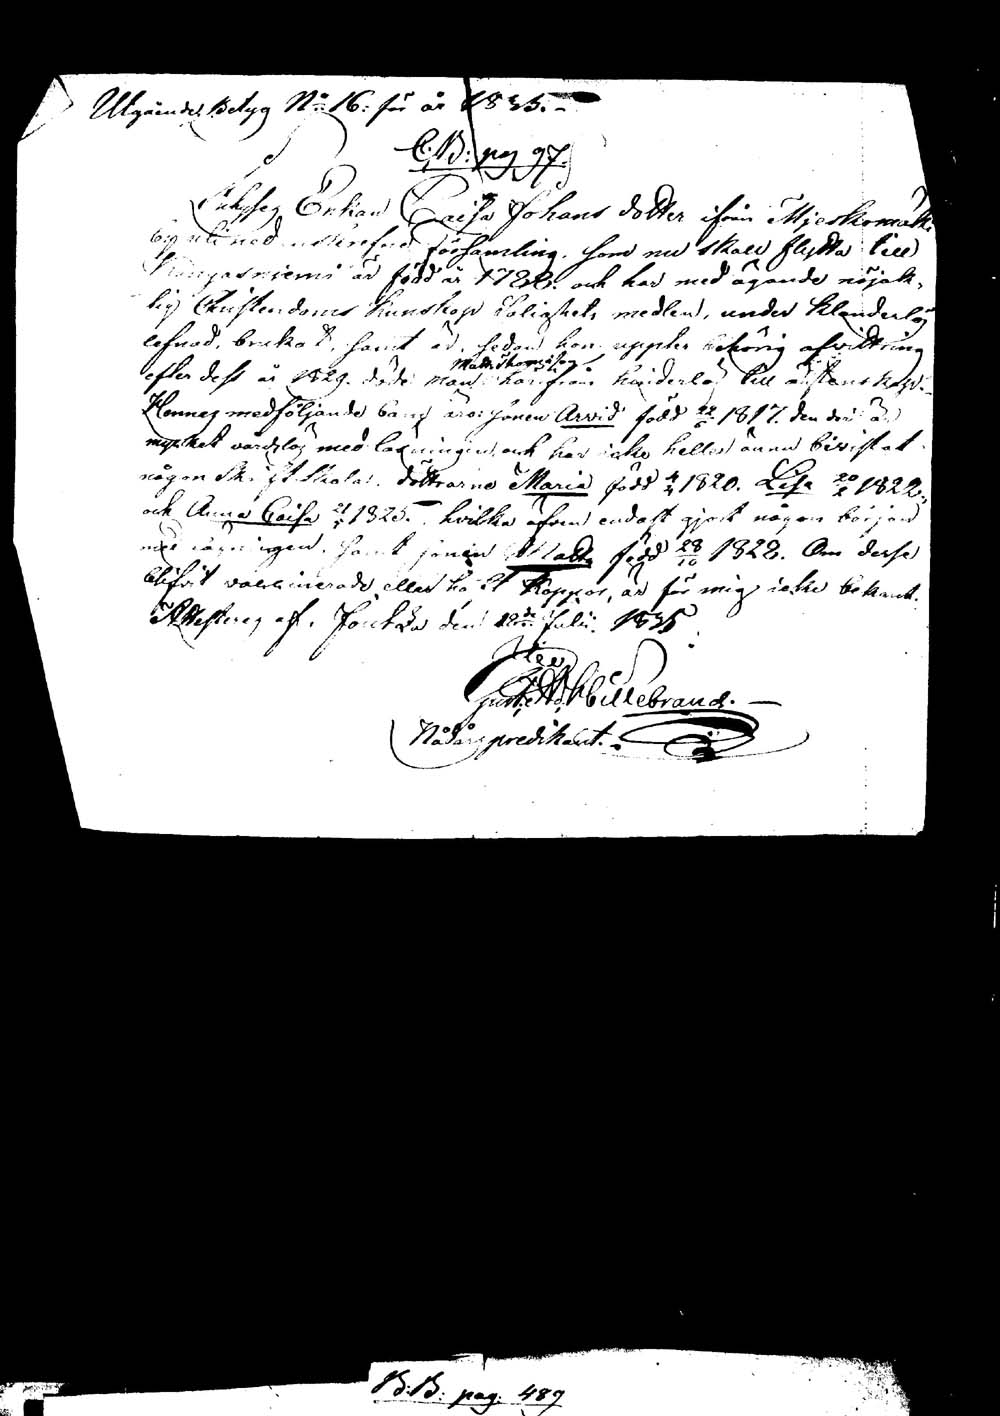 Utgående Betyg No 16: för år 1835.-
C:B: pag 97.
Enkan Caisa Johans dotter ifrån
församling, som nu skall flytta till
Kangasniemi är född år 1788. och har med ägande nöjak-
lig Christendoms kunskap Salighets medlen, under klanderlös
lefnad, brukat, samt är, sedan hon behörig afvittring
Matts Thomasson
efter dess år 1829. döde man hinderlös till äktenskap.
Hennes medföljande barn äro: sonen Arvid född 1817. den der är
mycket vårdslös med läsningen och har icke heller ännu bivistat
någon Skrift Skola. döttrarne Maria född 1820. Lisa 1822,
och Anna Caisa 1825. hvilka äfven endast gjort någon början
med läsningen. samt sonen Matts född 28/10 1828. Om desse
blifvit vaccinerade eller haft Koppor, är för mig icke bekant.
Attesteras af. Joutsa den Juli. 1835
Hillebrand. -
Nådårspredikant. -
B:B: pag: 489